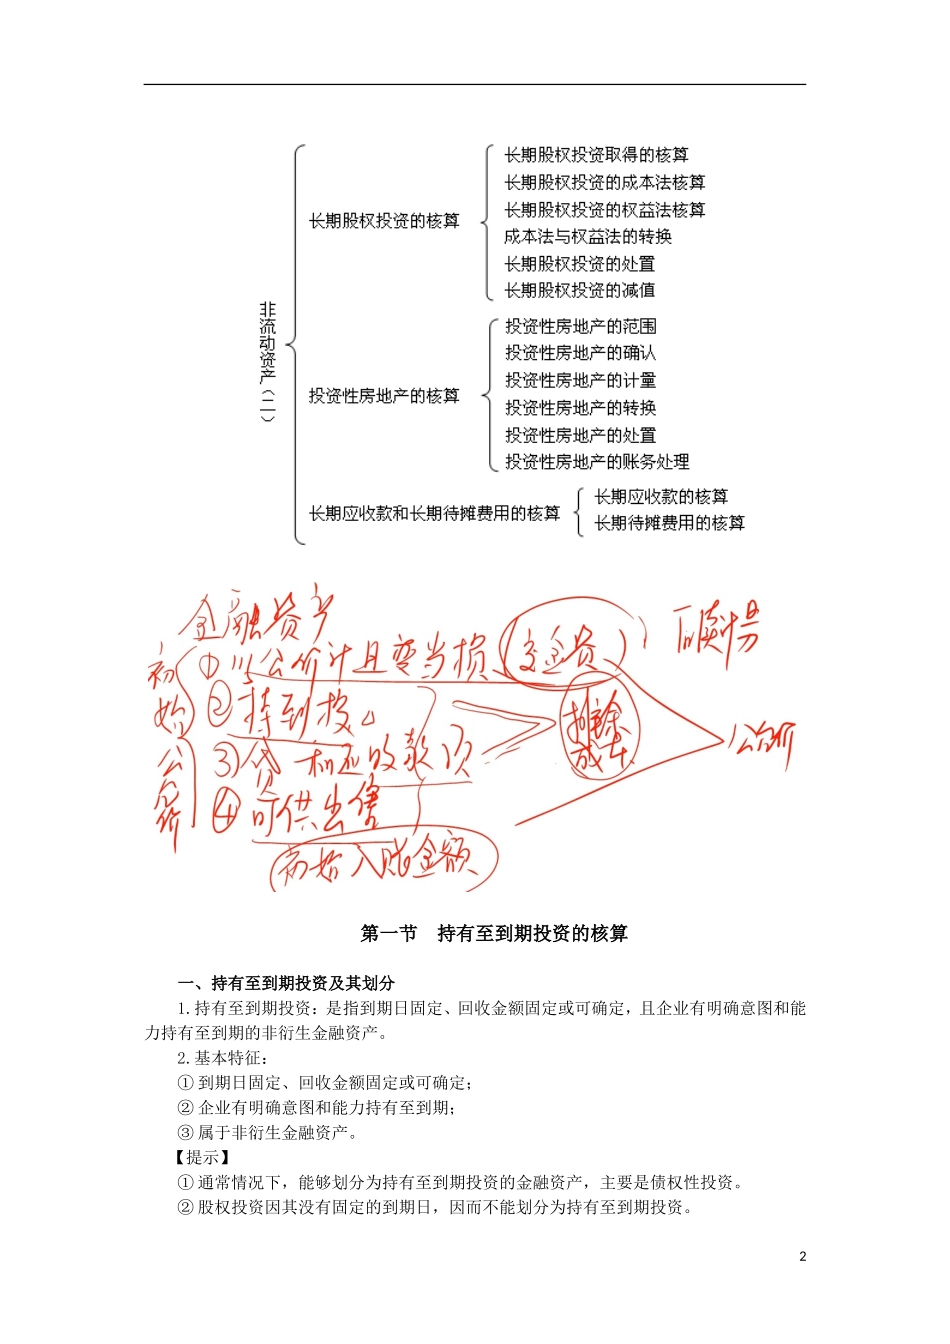 长期股权投资取得的核算
长期股权投资的成本法核算
长期股权投资的核算
长期股权投资的权益法核算
成本法与权益法的转换
长期股权投资的处置
长期股权投资的减值
非流动资产（二）
投资性房地产的范围
投资性房地产的确认
投资性房地产的核算
投资性房地产的计量
投资性房地产的转换
投资性房地产的处置
投资性房地产的账务处理
长期应收款和长期待摊费用的核算
长期应收款的核算
长期待摊费用的核算
金融资产
初始公允价
①以公价计且变当损
交金资
②持到投
③贷 和应收款项
④可供出售
摊余成本
公允价
初始入账金额
第一节 持有至到期投资的核算
一、持有至到期投资及其划分
1.持有至到期投资：是指到期日固定、回收金额固定或可确定，且企业有明确意图和能
力持有至到期的非衍生金融资产。
2.基本特征：
①到期日固定、回收金额固定或可确定；
②企业有明确意图和能力持有至到期；
③属于非衍生金融资产。
【提示】
①通常情况下，能够划分为持有至到期投资的金融资产，主要是债权性投资。
②股权投资因其没有固定的到期日，因而不能划分为持有至到期投资。
2